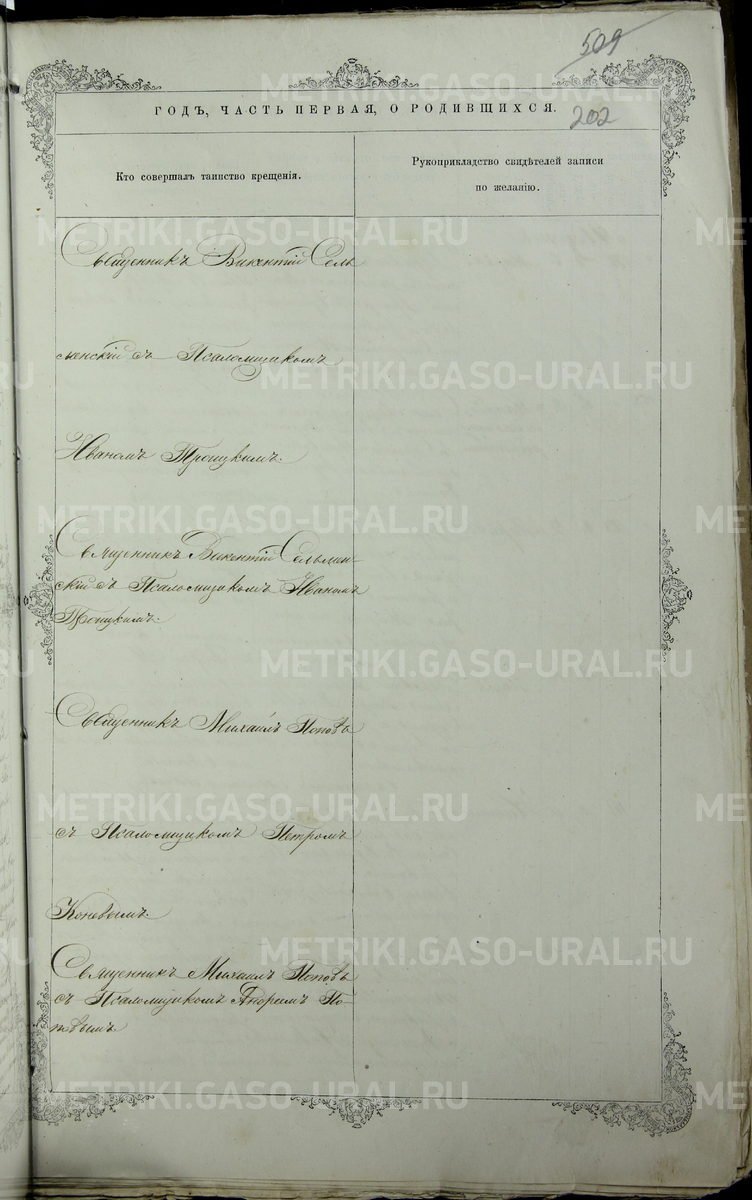 509
ГОДЪ, ЧАСТЬ ПЕРВАЯ, О РОДИВШИХСЯ.
202
Кто совершалъ таинство крещенія.
Рукоприкладство свидѣтелей записи
по желанію.
Священникъ Викентій Сель
менскій съ Псаломщикомъ
Иваномъ Троицкимъ.
Священникъ Викентій Сельмен-
скій съ Псаломщикомъ Иваномъ
Троицкимъ.
Священникъ Михаилъ Поповъ
съ Псаломщикомъ Петромъ
Коневымъ.
Священникъ Михаилъ Поповъ
съ Псаломщикомъ Андреемъ По-
повымъ.
METRIKI.GASO-URAL.RU